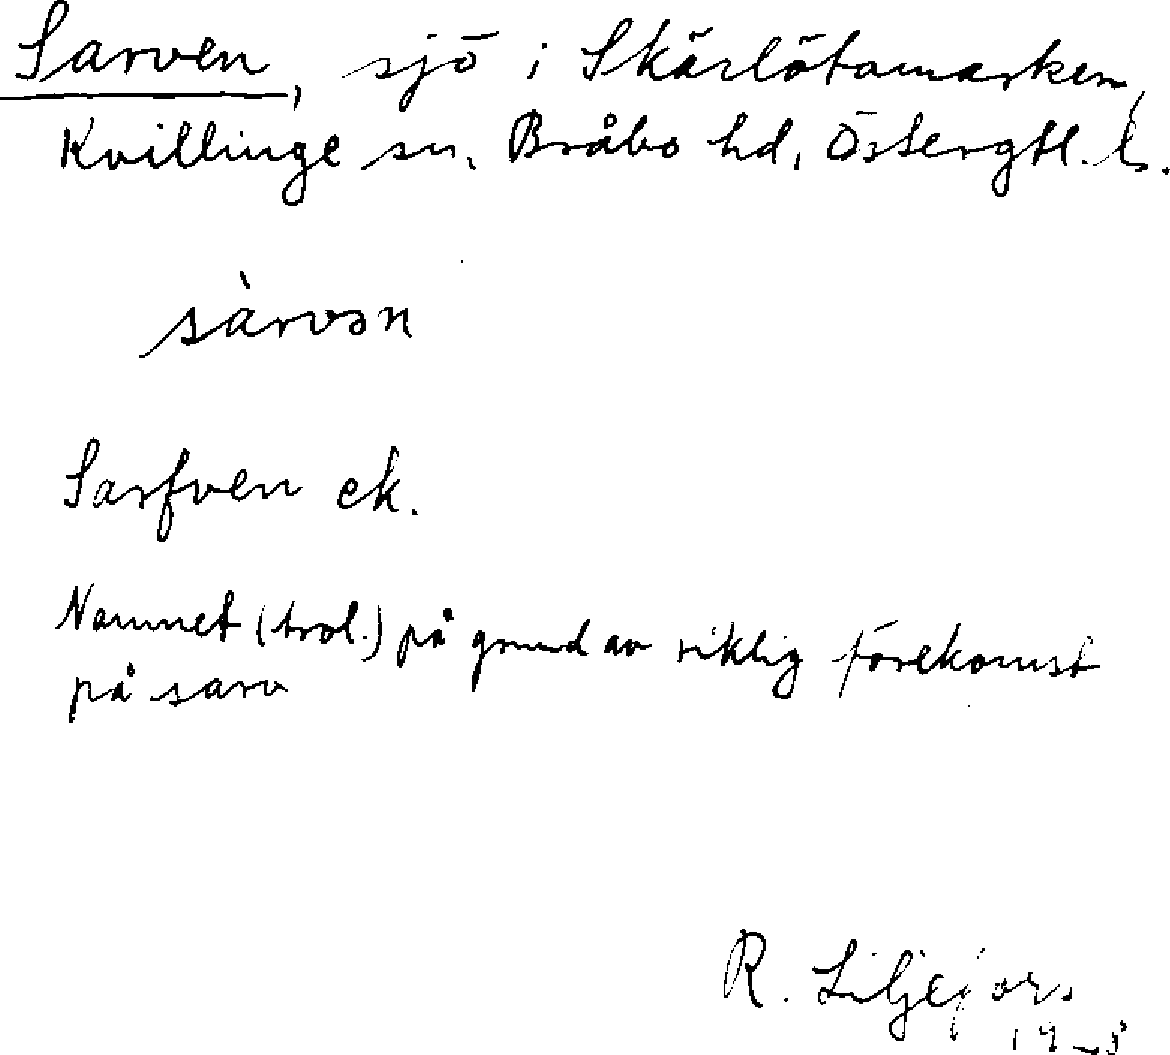 Sarven, sjö i Skärlötamarken,
Kvillinge sn, Bråbo hd, Östergtl. l.
sàrvən
Sarfven ek.
Namnet (trol.) på grund av riklig förekomst
på sarv
R. Liljefors